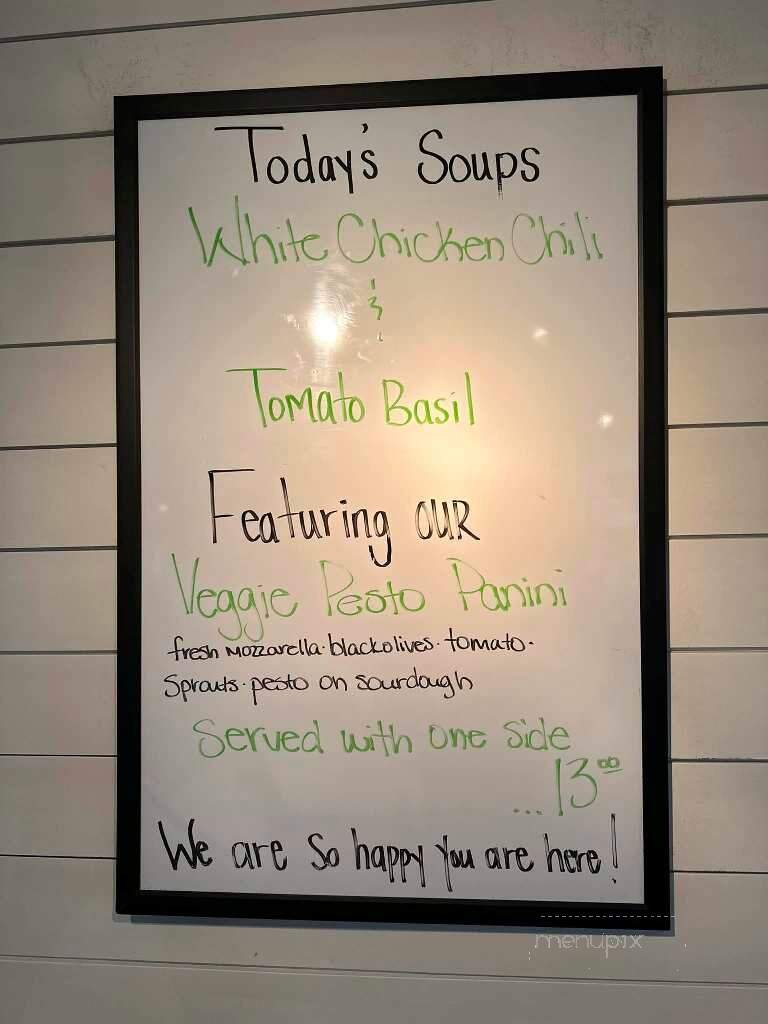 Today's Soups
White Chicken Chili
&
Tomato Basil
Featuring OUR
Veggie Pesto Panini
fresh mozzarella · black olives · tomato ·
Sprouts · pesto on sourdough
Served with one side
... 13⁰⁰
We are so happy you are here!
menupix